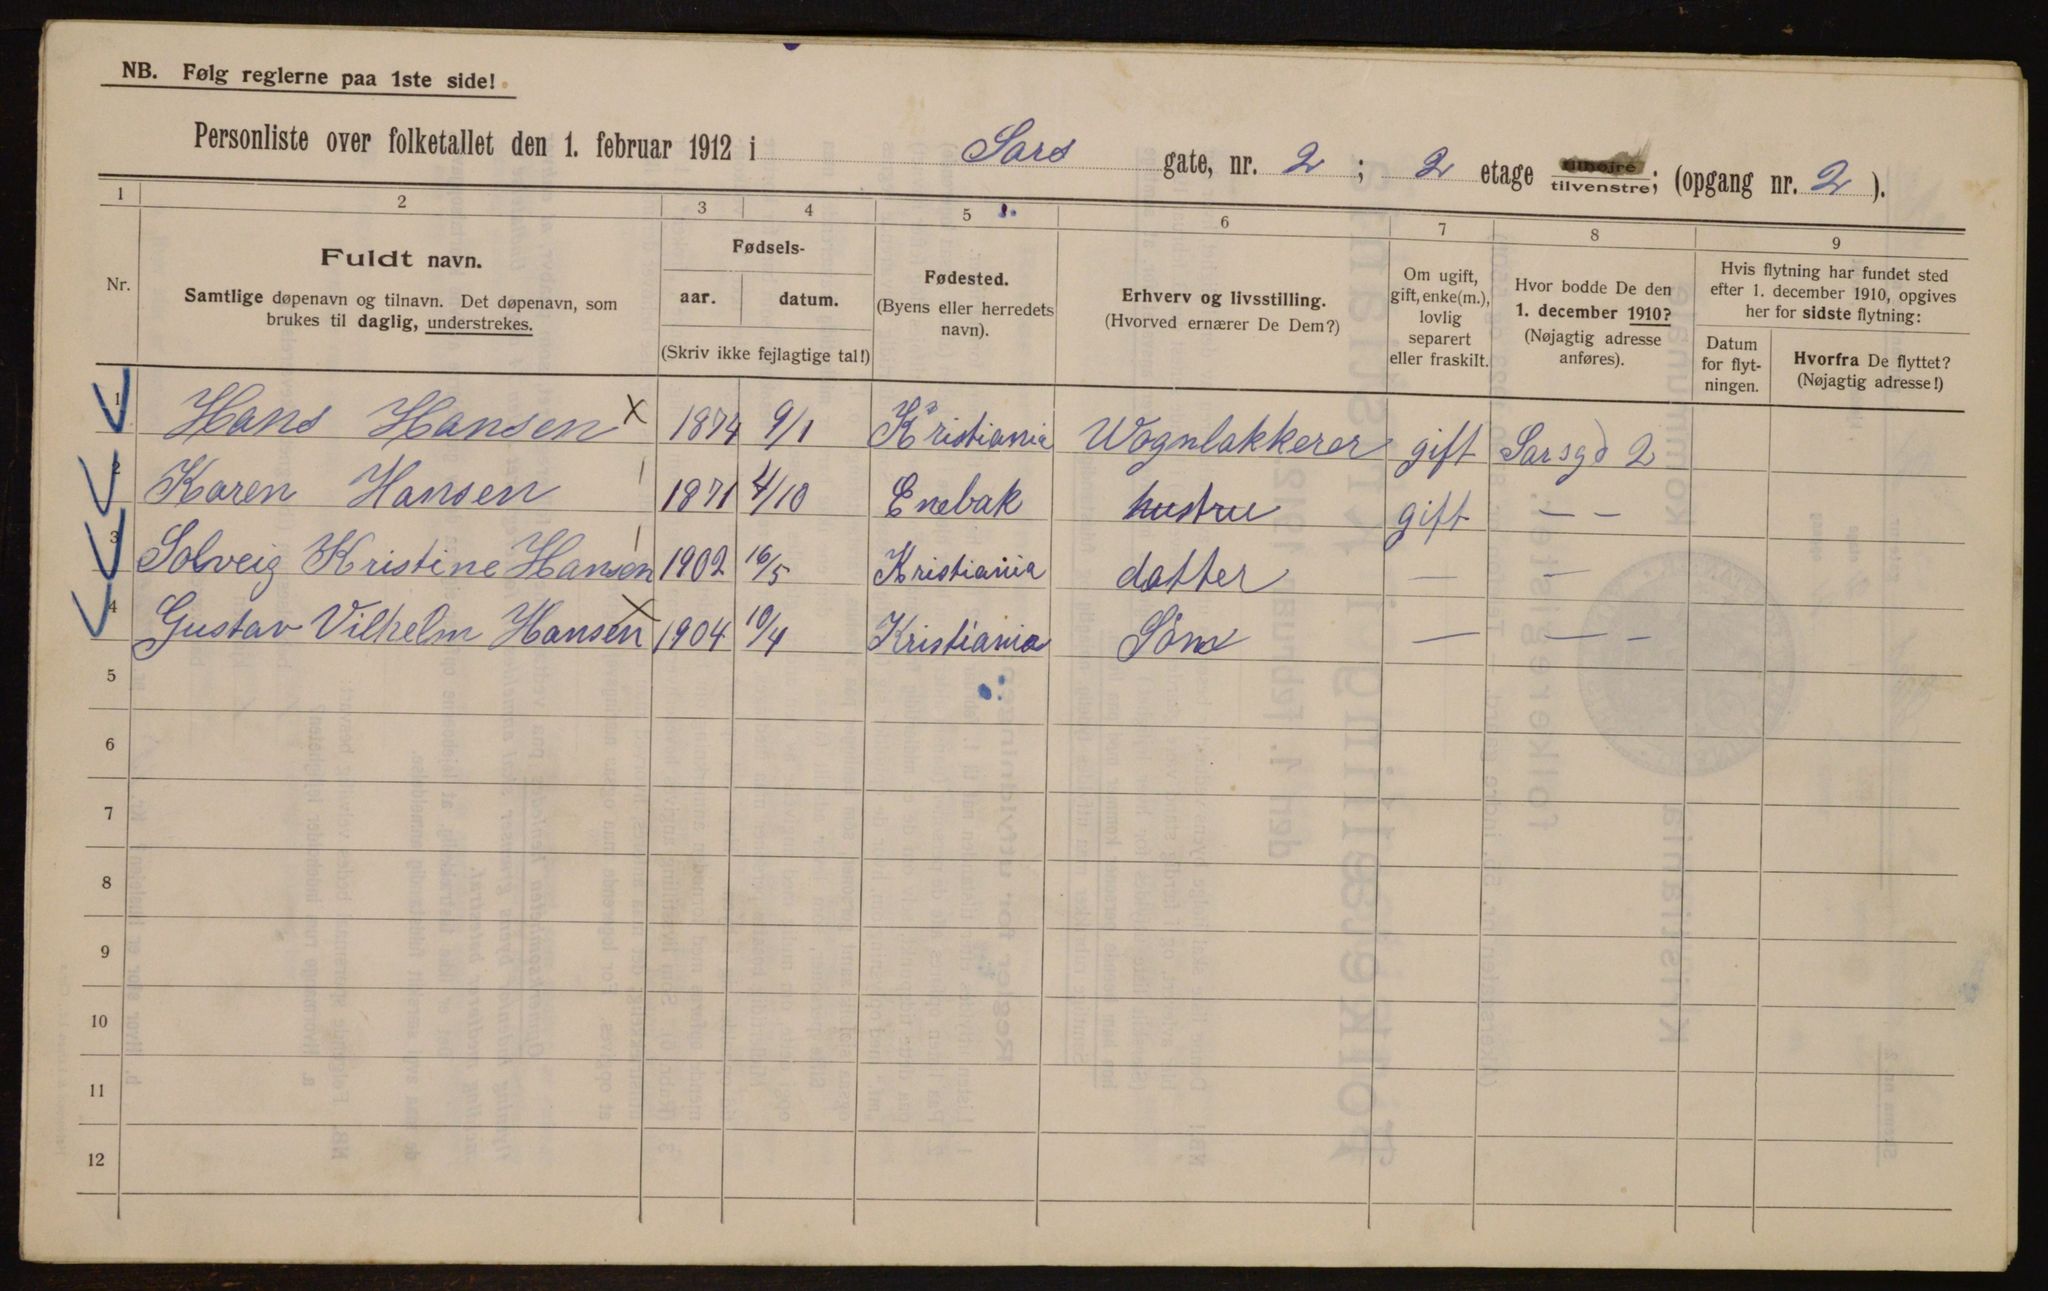 NB. Følg reglerne paa 1ste side!
Personliste over folketallet den 1. februar 1912 i Sars gate, nr. 2 ; 2 etage tilhøjre tilvenstre; (opgang nr. 2 ).
1 2 3 4 5 6 7 8 9
Nr.
Fuldt navn.
Samtlige døpenavn og tilnavn. Det døpenavn, som
brukes til daglig, understrekes.
Fødsels-
aar. datum.
(Skriv ikke fejlagtige tal!)
Fødested.
(Byens eller herredets
navn).
Erhverv og livsstilling.
(Hvorved ernærer De Dem?)
Om ugift,
gift, enke(m.),
lovlig
separert
eller fraskilt.
Hvor bodde De den
1. december 1910?
(Nøjagtig adresse
anføres).
Hvis flytning har fundet sted
efter 1. december 1910, opgives
her for sidste flytning:
Datum
for flyt-
ningen.
Hvorfra De flyttet?
(Nøjagtig adresse!)
1 Hans Hansen x 1874 9/1 Kristiania Vognlakkerer gift Sarsgd 2
2 Karen Hansen 1871 4/10 Enebak hustru gift — —
3 Solveig Kristine Hansen 1902 16/5 Kristiania datter — —
4 Gustav Vilhelm Hansen x 1904 10/4 Kristiania Søn — — —
5
6
7
8
9
10
11
12